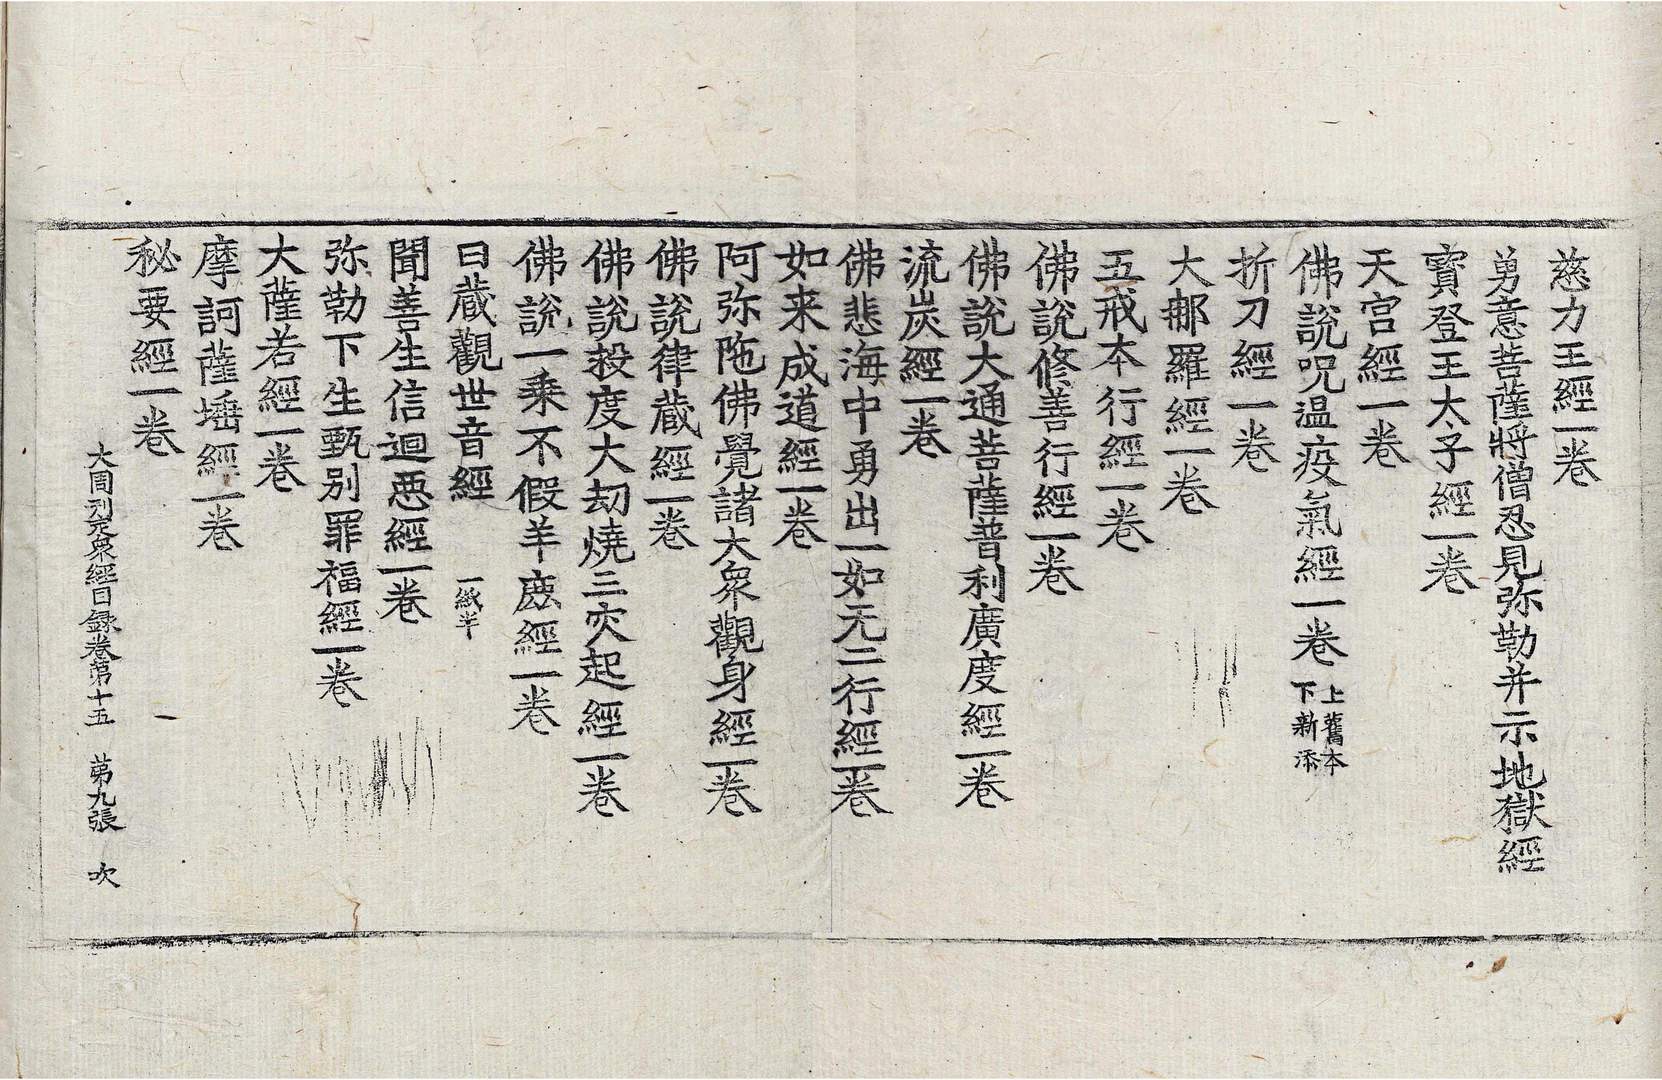 慈力王經一卷
勇意菩薩將僧忍見弥勒并示地獄經
寳登王太子經一卷
天宫經一卷
佛說呪温疫氣經一卷 上舊本下新添
折刀經一卷
大𨚗羅經一卷
五戒本行經一卷
佛說修善行經一卷
佛說大通菩薩普利廣度經一卷
流炭經一卷
佛悲海中勇出一如无二行經一卷
如来成道經一卷
阿弥陁佛覺諸大衆觀身經一卷
佛說律蔵經一卷
佛說殺度大劫燒三灾起經一卷
佛說一乗不假羊鹿經一卷
日蔵觀世音經 一紙半
聞善生信迴惡經一卷
弥勒下生甄别罪福經一卷
大薩若經一卷
摩訶薩埵經一卷
秘要經一卷
大周刋定衆經目録卷第十五 第九張 次